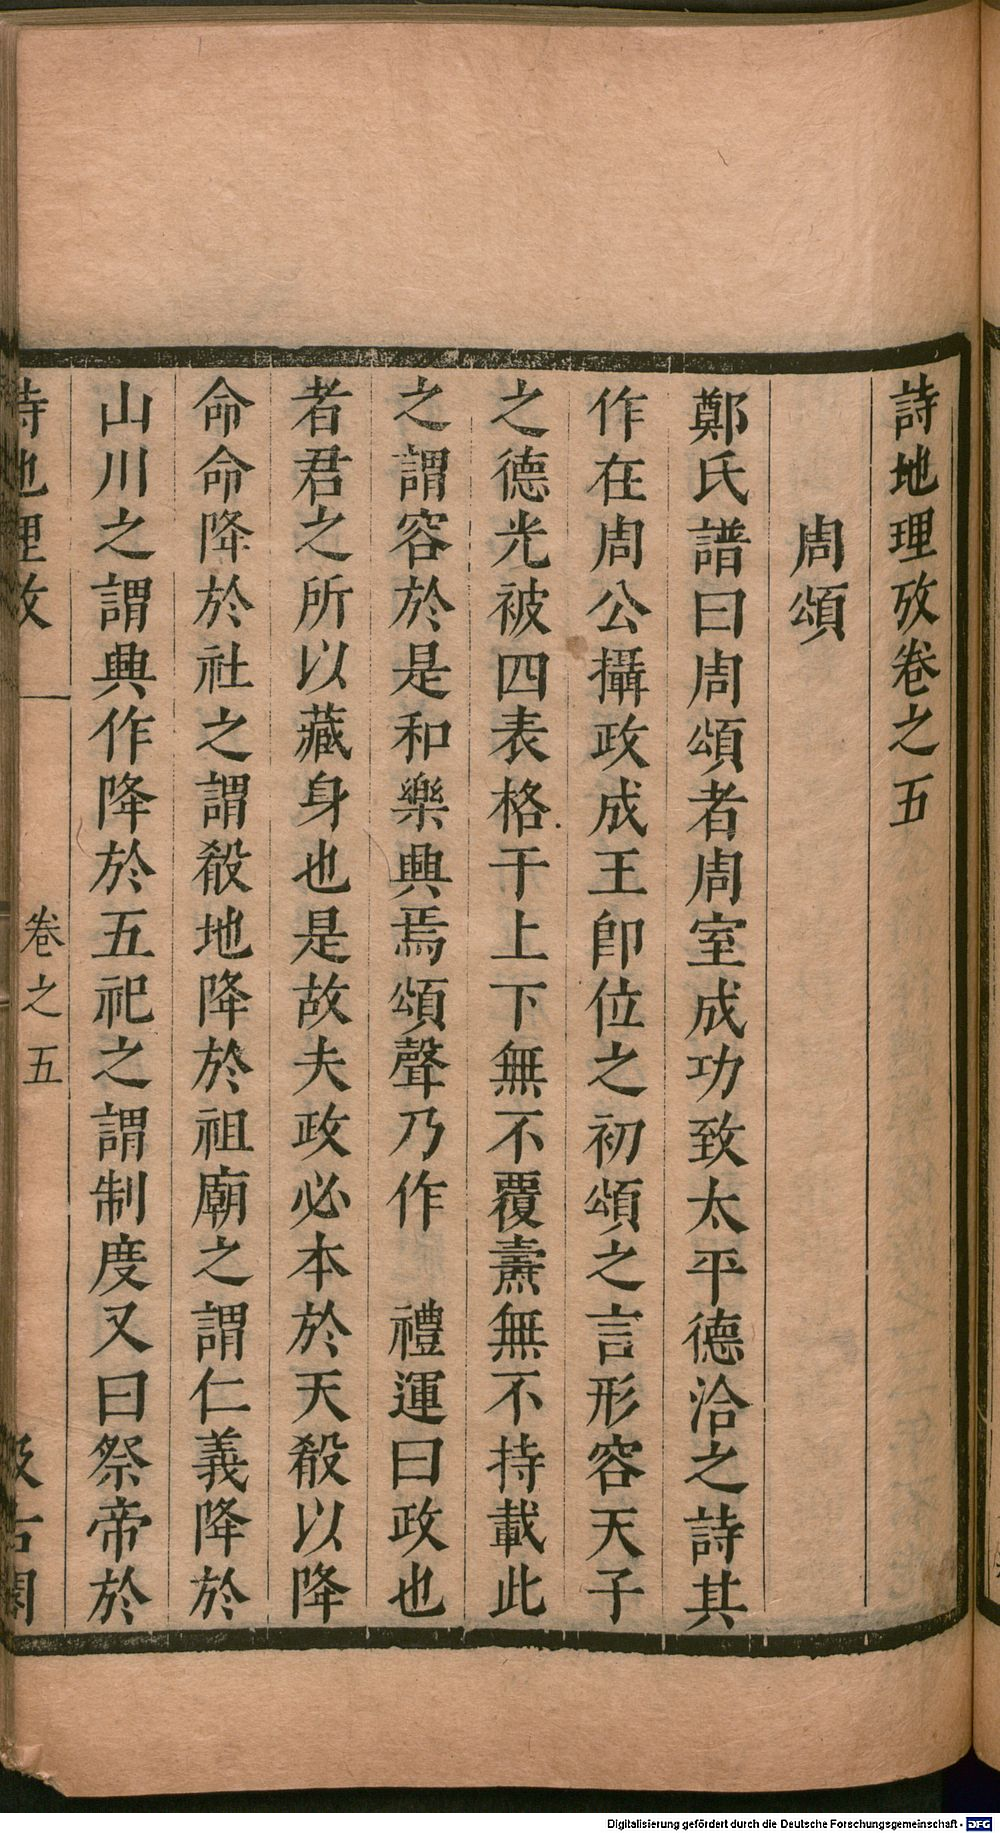 詩地理攷卷之五
周頌
鄭氏譜曰周頌者周室成功致太平德洽之詩其
作在周公攝政成王卽位之初頌之言形容天子
之德光被四表格于上下無不覆燾無不持載此
之謂容於是和樂興焉頌聲乃作　禮運曰政也
者君之所以藏身也是故夫政必本於天殽以降
命命降於社之謂殽地降於祖廟之謂仁義降於
山川之謂興作降於五祀之謂制度又曰祭帝於
詩地理攷　卷之五　汲古閣
Digitalisierung gefördert durch die Deutsche Forschungsgemeinschaft - DFG